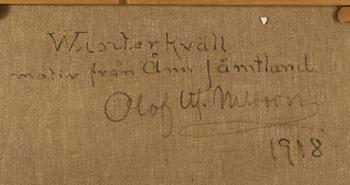 Winterkväll
motiv från Ånn Jämtland
Olof W. Nilsson
1918